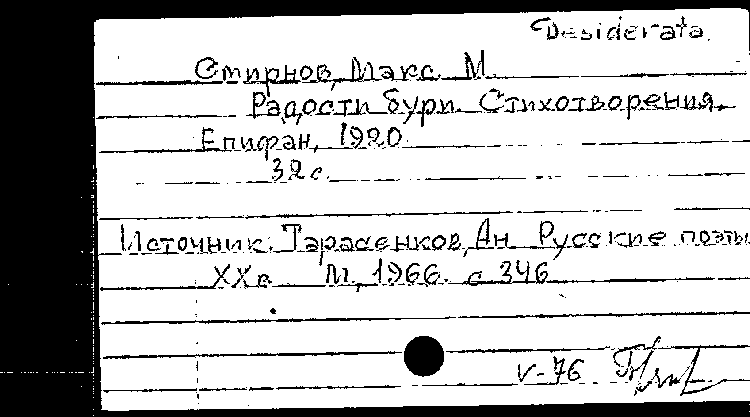 Desiderata.
Смирнов, Макс. М.
Радости бури. Стихотворения.
Епифан, 1920.
32 с.
Источник: Тарасенков, Ан. Русские поэты
XX в. М., 1966. с. 346
V-76